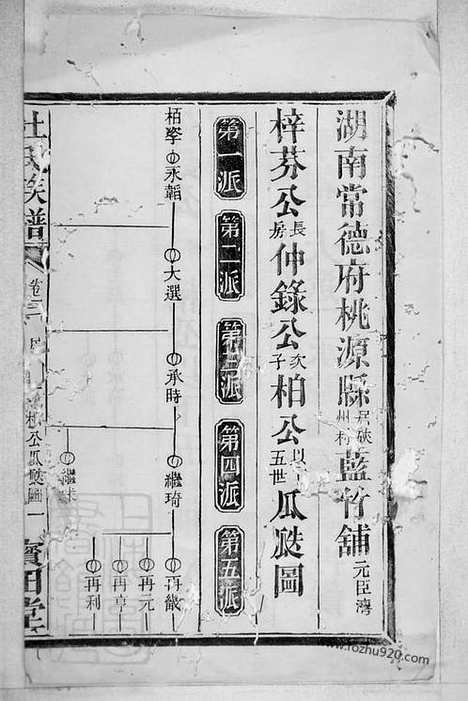 湖南常德府桃源縣居陝州村藍竹舖元臣灣
梓芬公長房仲錄公次子柏公以下五世瓜瓞圖
第一派 第二派 第三派 第四派 第五派
栢孥 永韜 大選 承時 繼琦 再畿
再元
再亨
再利
繼
杜氏族譜 卷三 柏公瓜瓞圖 一 寶田堂
www.fozhu920.com